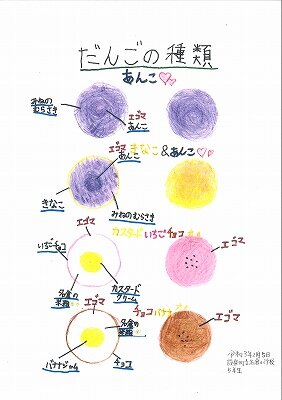 だんごの種類
あんこ♡♡
みねの
むらさき
エゴマ
あんこ
エゴマ きなこ&あんこ♡♡
あんこ
きなこ
みねのむらさき
カスタードいちごチョコ
エゴマ
いちごチョコ
エゴマ
カスタード
クリーム
チョコバナナ
エゴマ
エゴマ
バナナジャム
チョコ
5年生